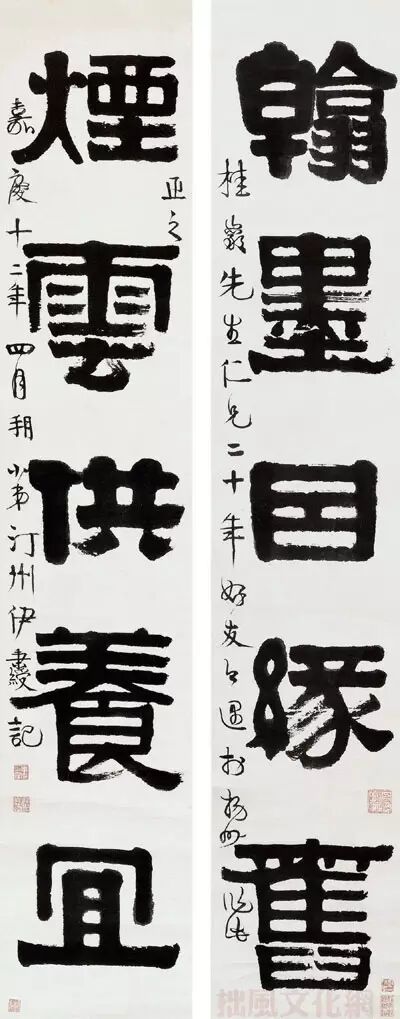 翰墨因緣舊
桂巖先生仁兄二十年好友今遇於揚州作此
煙雲供養宜
正之
嘉慶十二年四月朔小弟汀州伊秉綬記
拙風文化網